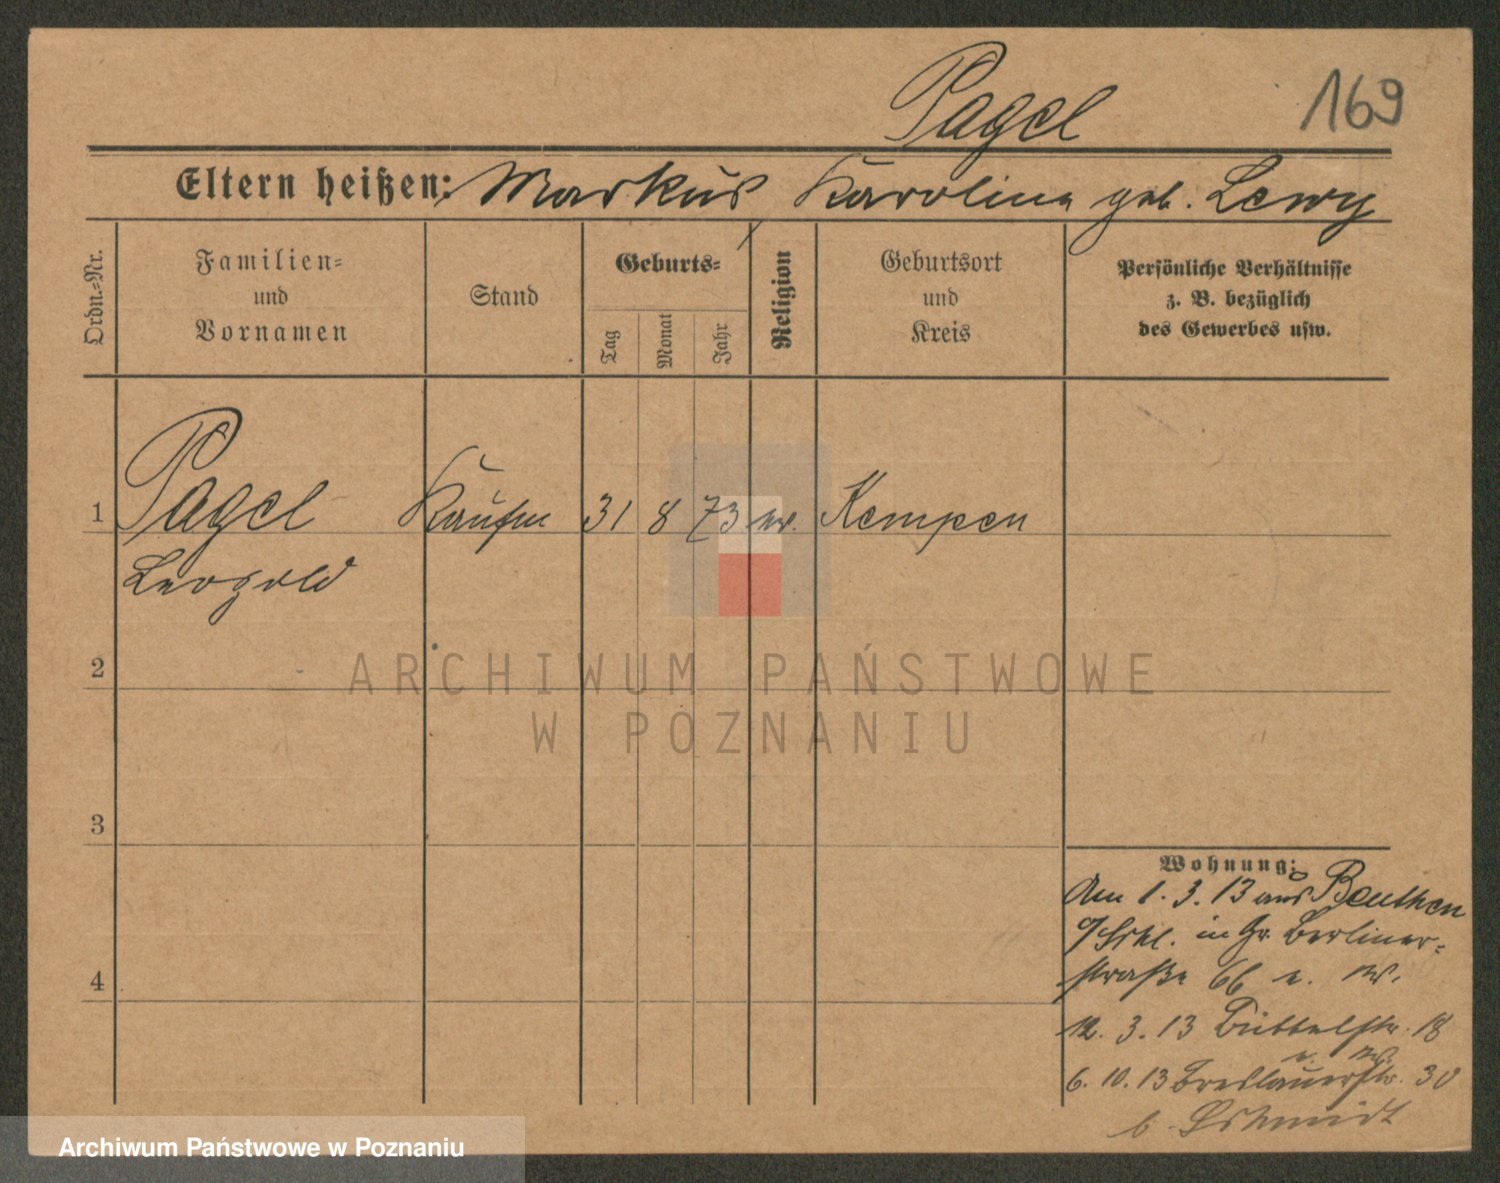 Pagel
169
Eltern heißen: Markus Karoline geb. Lewy
Ordn.-Nr.
Familien-
und
Vornamen
Stand
Geburts-
Tag
Monat
Jahr
Religion
Geburtsort
und
Kreis
Persönliche Verhältnisse
z. B. bezüglich
des Gewerbes usw.
1 Pagel Kaufm 31 8 73 Kempen
Leopold
2
3
4
Wohnung:
Am 1. 3. 13 aus Beuthen
O/Schl. in Gr. Berliner-
straße 66
12. 3. 13 Büttelstr. 18
6. 10. 13 Breslauerstr. 30
b. Schmidt
ARCHIWUM PAŃSTWOWE
W POZNANIU
Archiwum Państwowe w Poznaniu